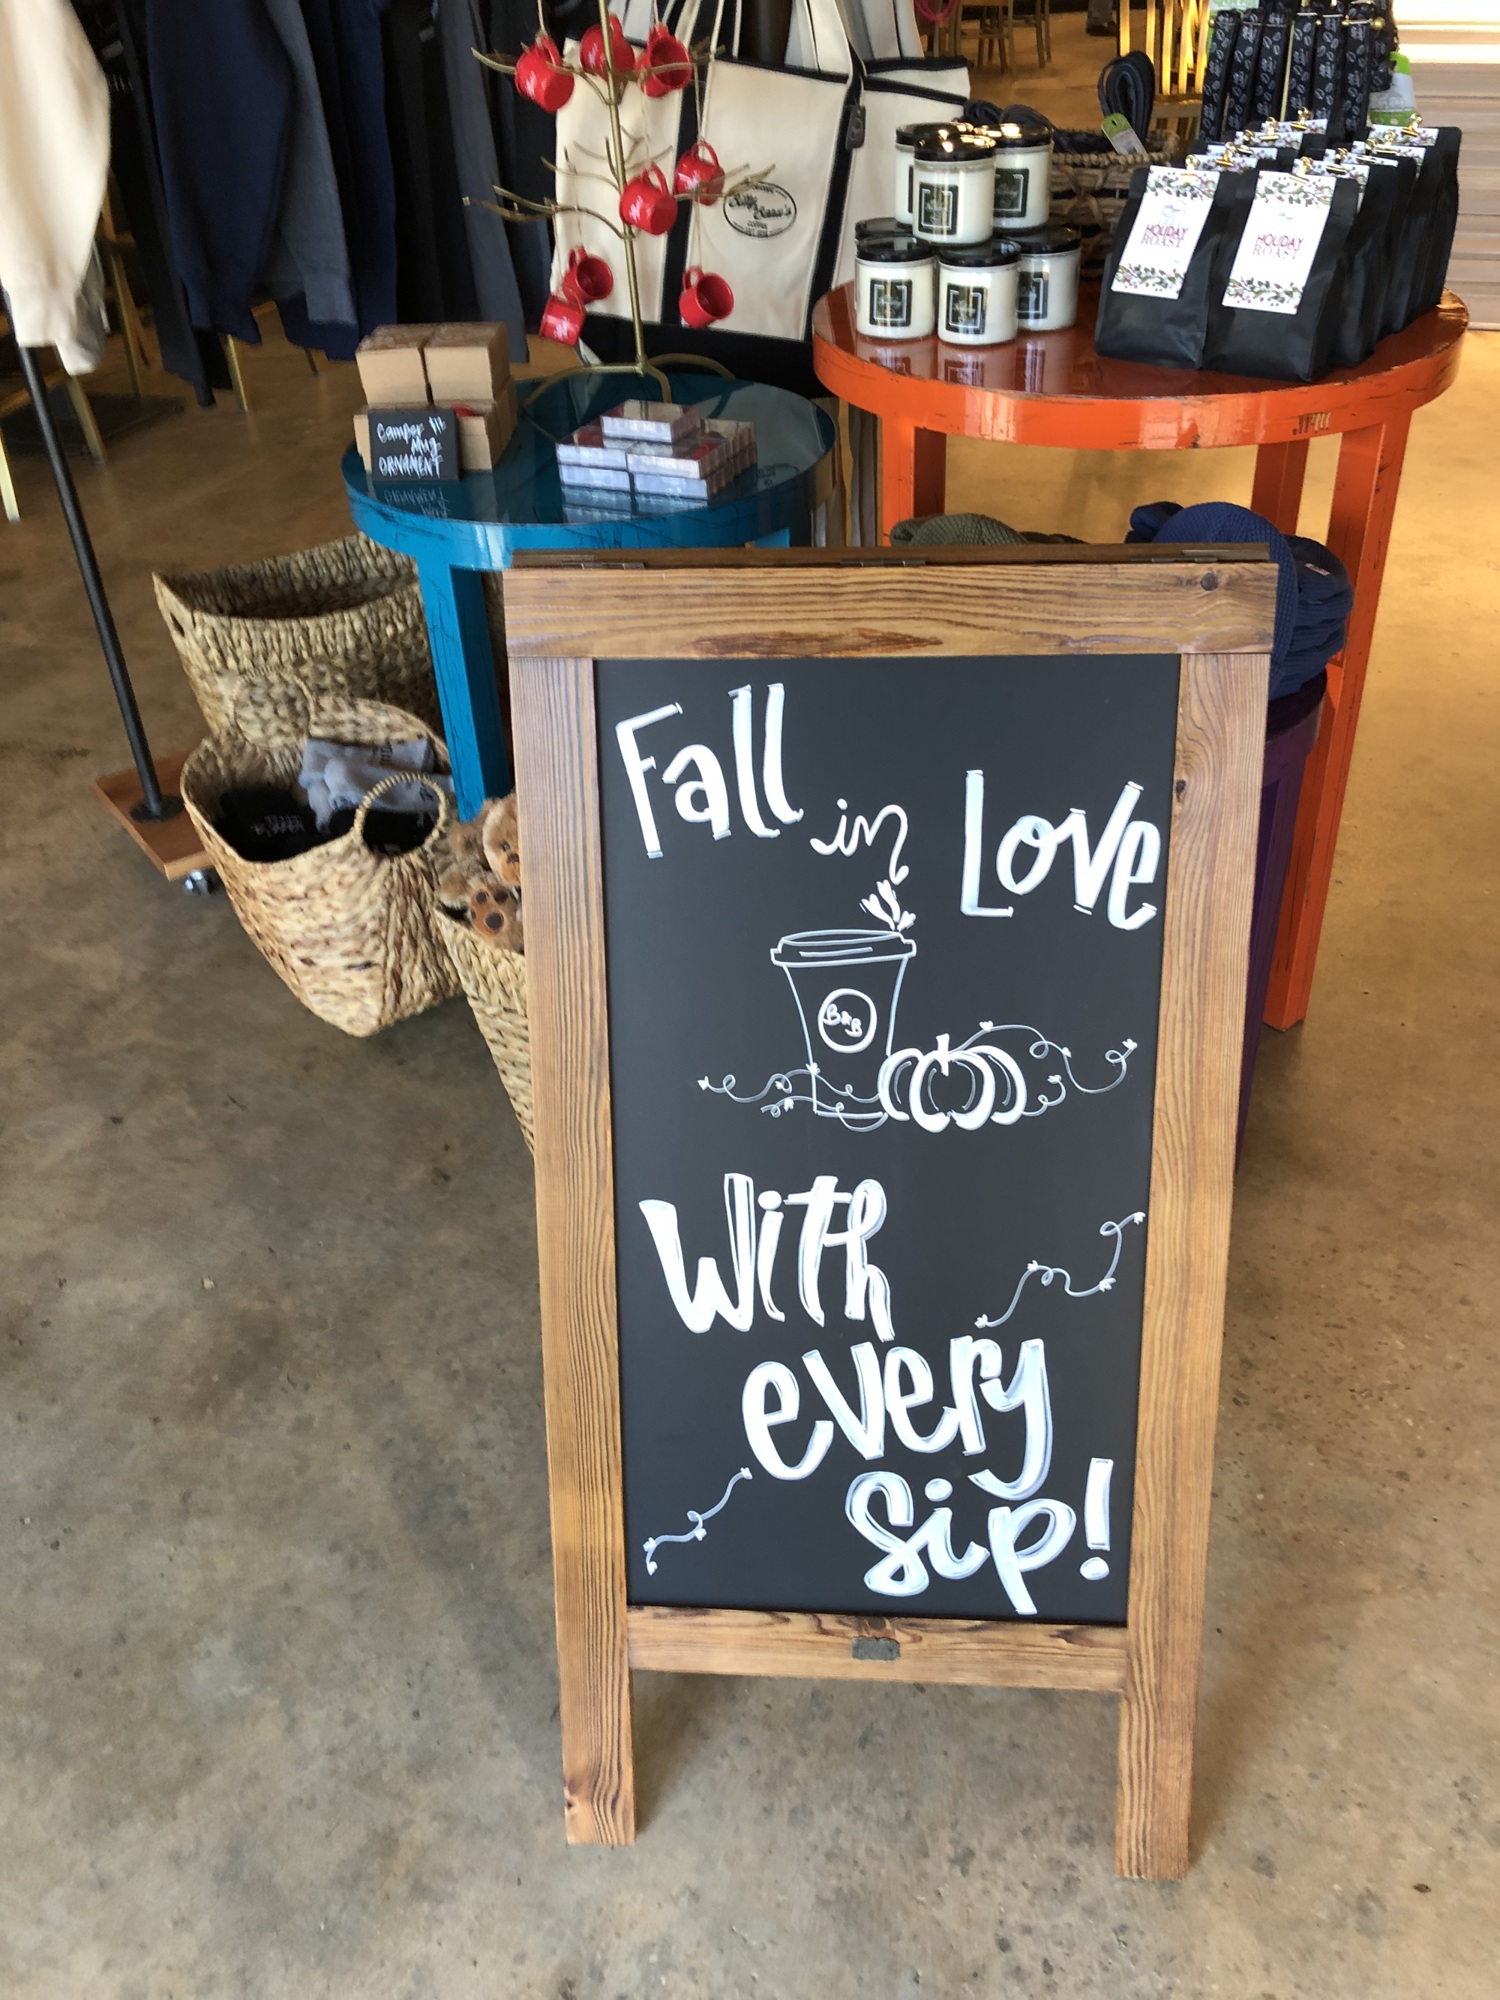 Fall in Love
B&B
With
every
sip!
Camper
Mug
ORNAMENT
COFFEE
HOLIDAY
ROAST
HOLIDAY
ROAST